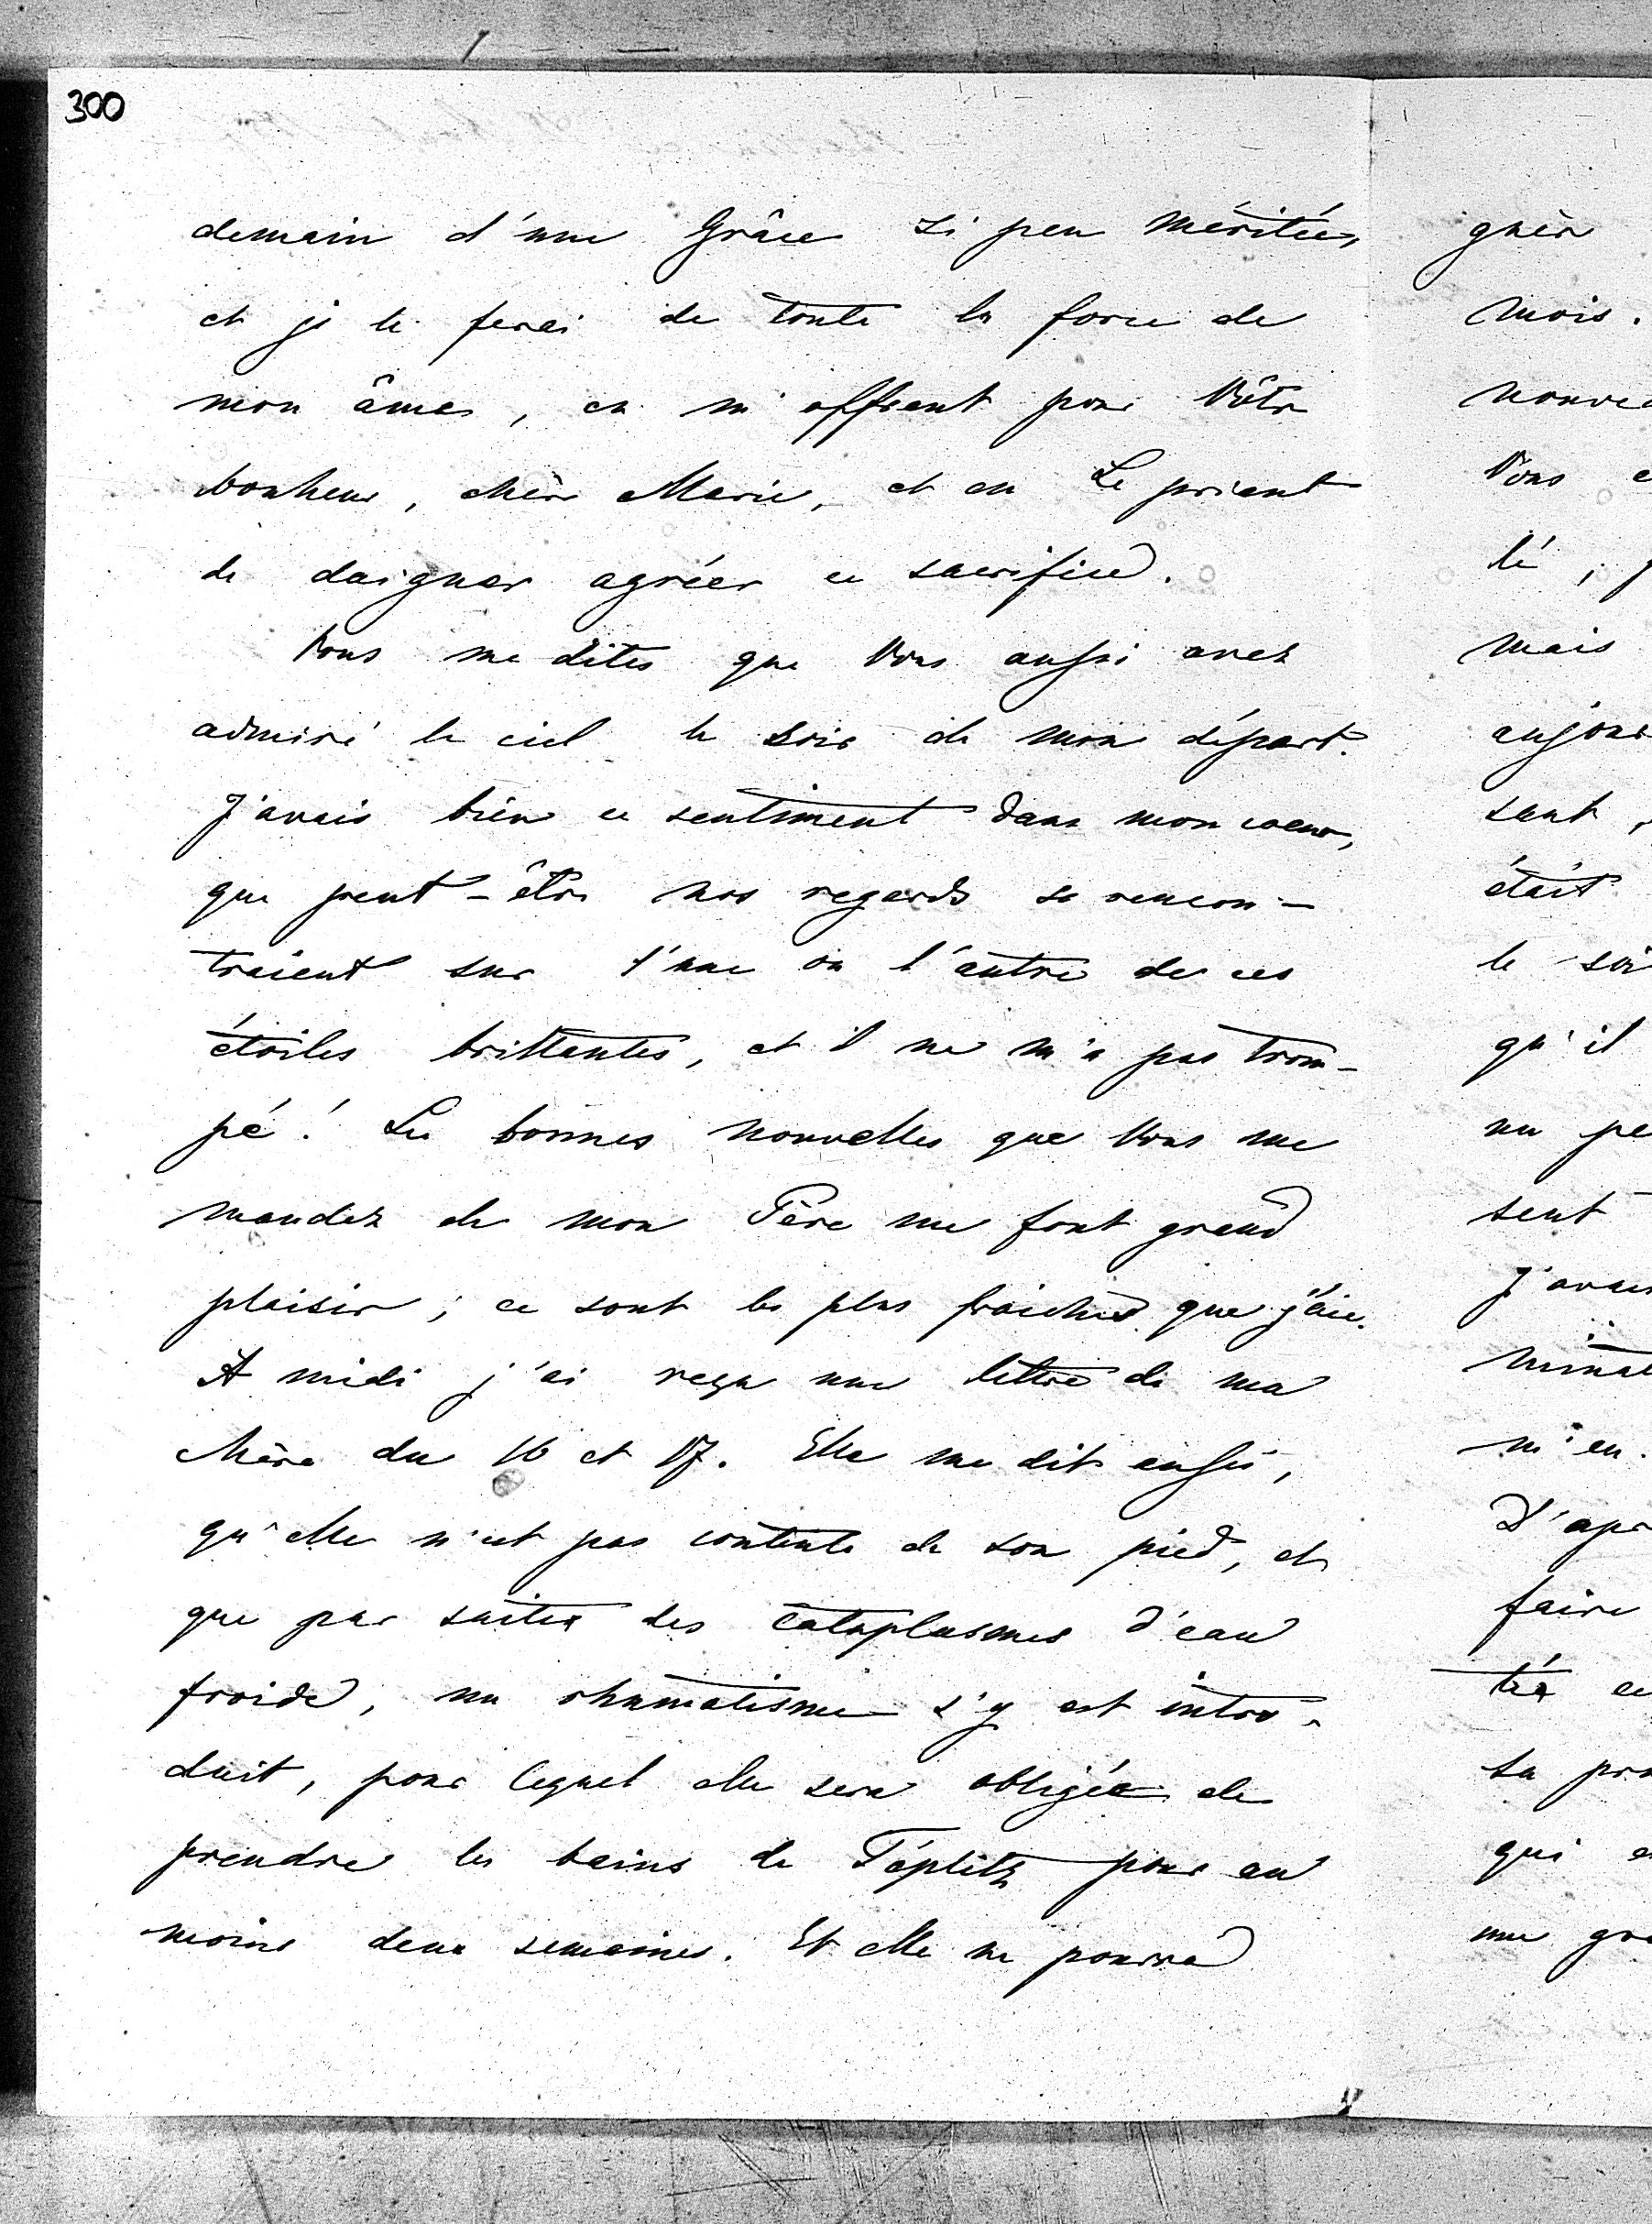 300
demain d'une Grâce si peu méritée,
et je le ferai de toute la force de
mon âme, en m'offrant pour Vôtre
bonheur, chère Marie, et en Le priant
de daigner agréer ce sacrifice.
Vous me dites que Vous aussi avez
admiré le ciel le soir de mon départ.
J'avais bien ce sentiment dans mon coeur,
que peut-être nos regards se rencon-
traient sur l'une ou l'autre de ces
étoiles brillantes, et il ne m'a pas trom-
pé! Les bonnes nouvelles que Vous me
mandez de mon Père me font grand
plaisir; ce sont les plus fraiches que j'aie.
A midi j'ai reçu une lettre de ma
Mère du 16 et 17. Elle me dit aussi,
qu'elle n'est pas contente de son pied, et
que par suite des cataplasmes d'eau
froide, un rhumatisme s'y est intro-
duit, pour lequel elle sera obligée de
prendre les bains de Téplitz pour au
moins deux semaines. Et elle ne pourra
mois.
Vous
mais
sant,
était
le
qu'il
sent
m'en
faire
qui